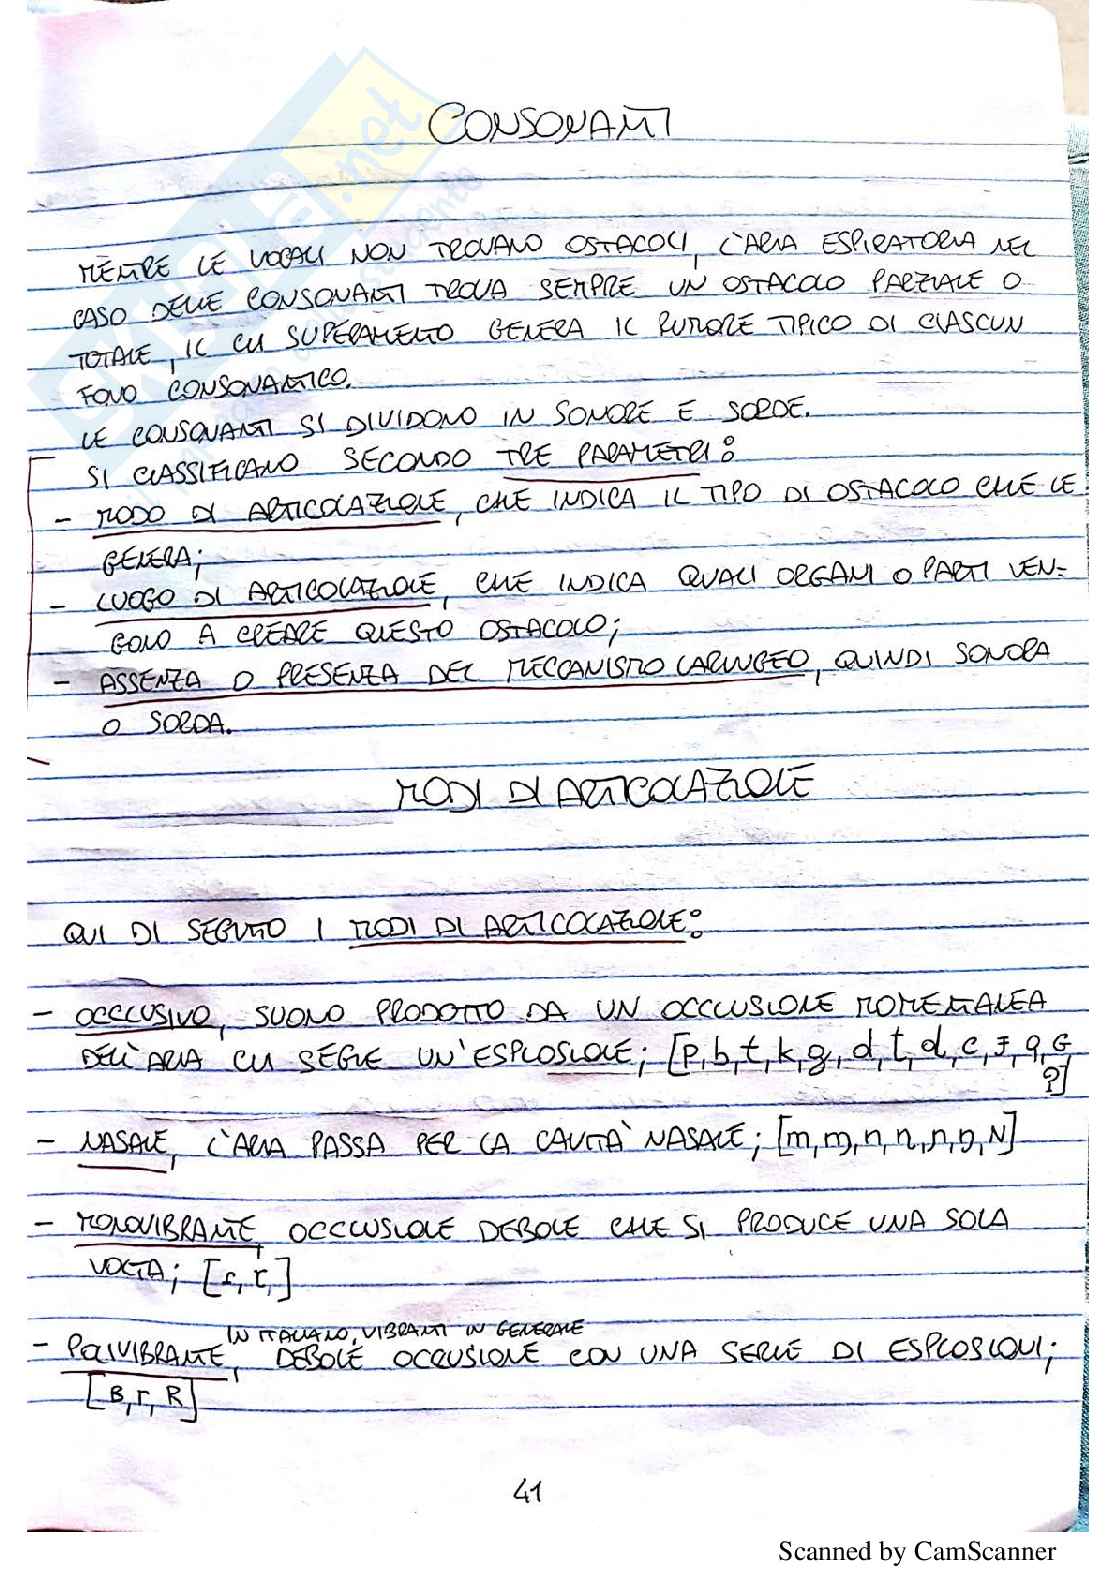 CONSONANTI
MENTRE LE VOCALI NON TROVANO OSTACOLI, L'ARIA ESPIRATORIA NEL
CASO DELLE CONSONANTI TROVA SEMPRE UN OSTACOLO PARZIALE O
TOTALE, IL CUI SUPERAMENTO GENERA IL RUMORE TIPICO DI CIASCUN
FONO CONSONANTICO.
LE CONSONANTI SI DIVIDONO IN SONORE E SORDE.
SI CLASSIFICANO SECONDO TRE PARAMETRI:
- MODO DI ARTICOLAZIONE, CHE INDICA IL TIPO DI OSTACOLO CHE LE
GENERA;
- LUOGO DI ARTICOLAZIONE, CHE INDICA QUALI ORGANI O PARTI VEN-
GONO A CREARE QUESTO OSTACOLO;
- ASSENZA O PRESENZA DEL MECCANISMO LARINGEO, QUINDI SONORA
O SORDA.
MODI DI ARTICOLAZIONE
QUI DI SEGUITO I MODI DI ARTICOLAZIONE:
- OCCLUSIVO, SUONO PRODOTTO DA UN OCCLUSIONE MOMENTANEA
DELL'ARIA CUI SEGUE UN'ESPLOSIONE; [p, b, t, k, g, d, ʈ, ɖ, c, ɟ, q, G
ʔ]
- NASALE, L'ARIA PASSA PER LA CAVITÀ NASALE; [m, ɱ, n, ɳ, ɲ, ŋ, N]
- MONOVIBRANTE OCCLUSIONE DEBOLE CHE SI PRODUCE UNA SOLA
VOLTA; [ɾ, ɽ,]
IN ITALIANO, VIBRANTI IN GENERALE
- POLIVIBRANTE, DEBOLE OCCLUSIONE CON UNA SERIE DI ESPLOSIONI;
[B, r, R]
41
Scanned by CamScanner